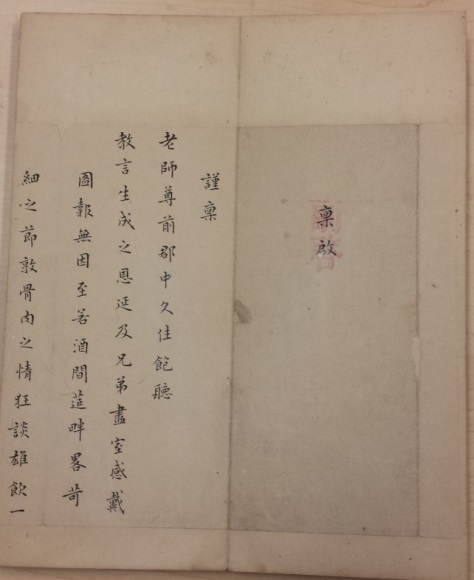 稟啟
謹稟
老師尊前郡中久住飽聽
教言生成之恩延及兄弟盡室感戴
圖報無因至若酒間筵畔畧苛
細之節敦骨肉之情狂談雄飲一